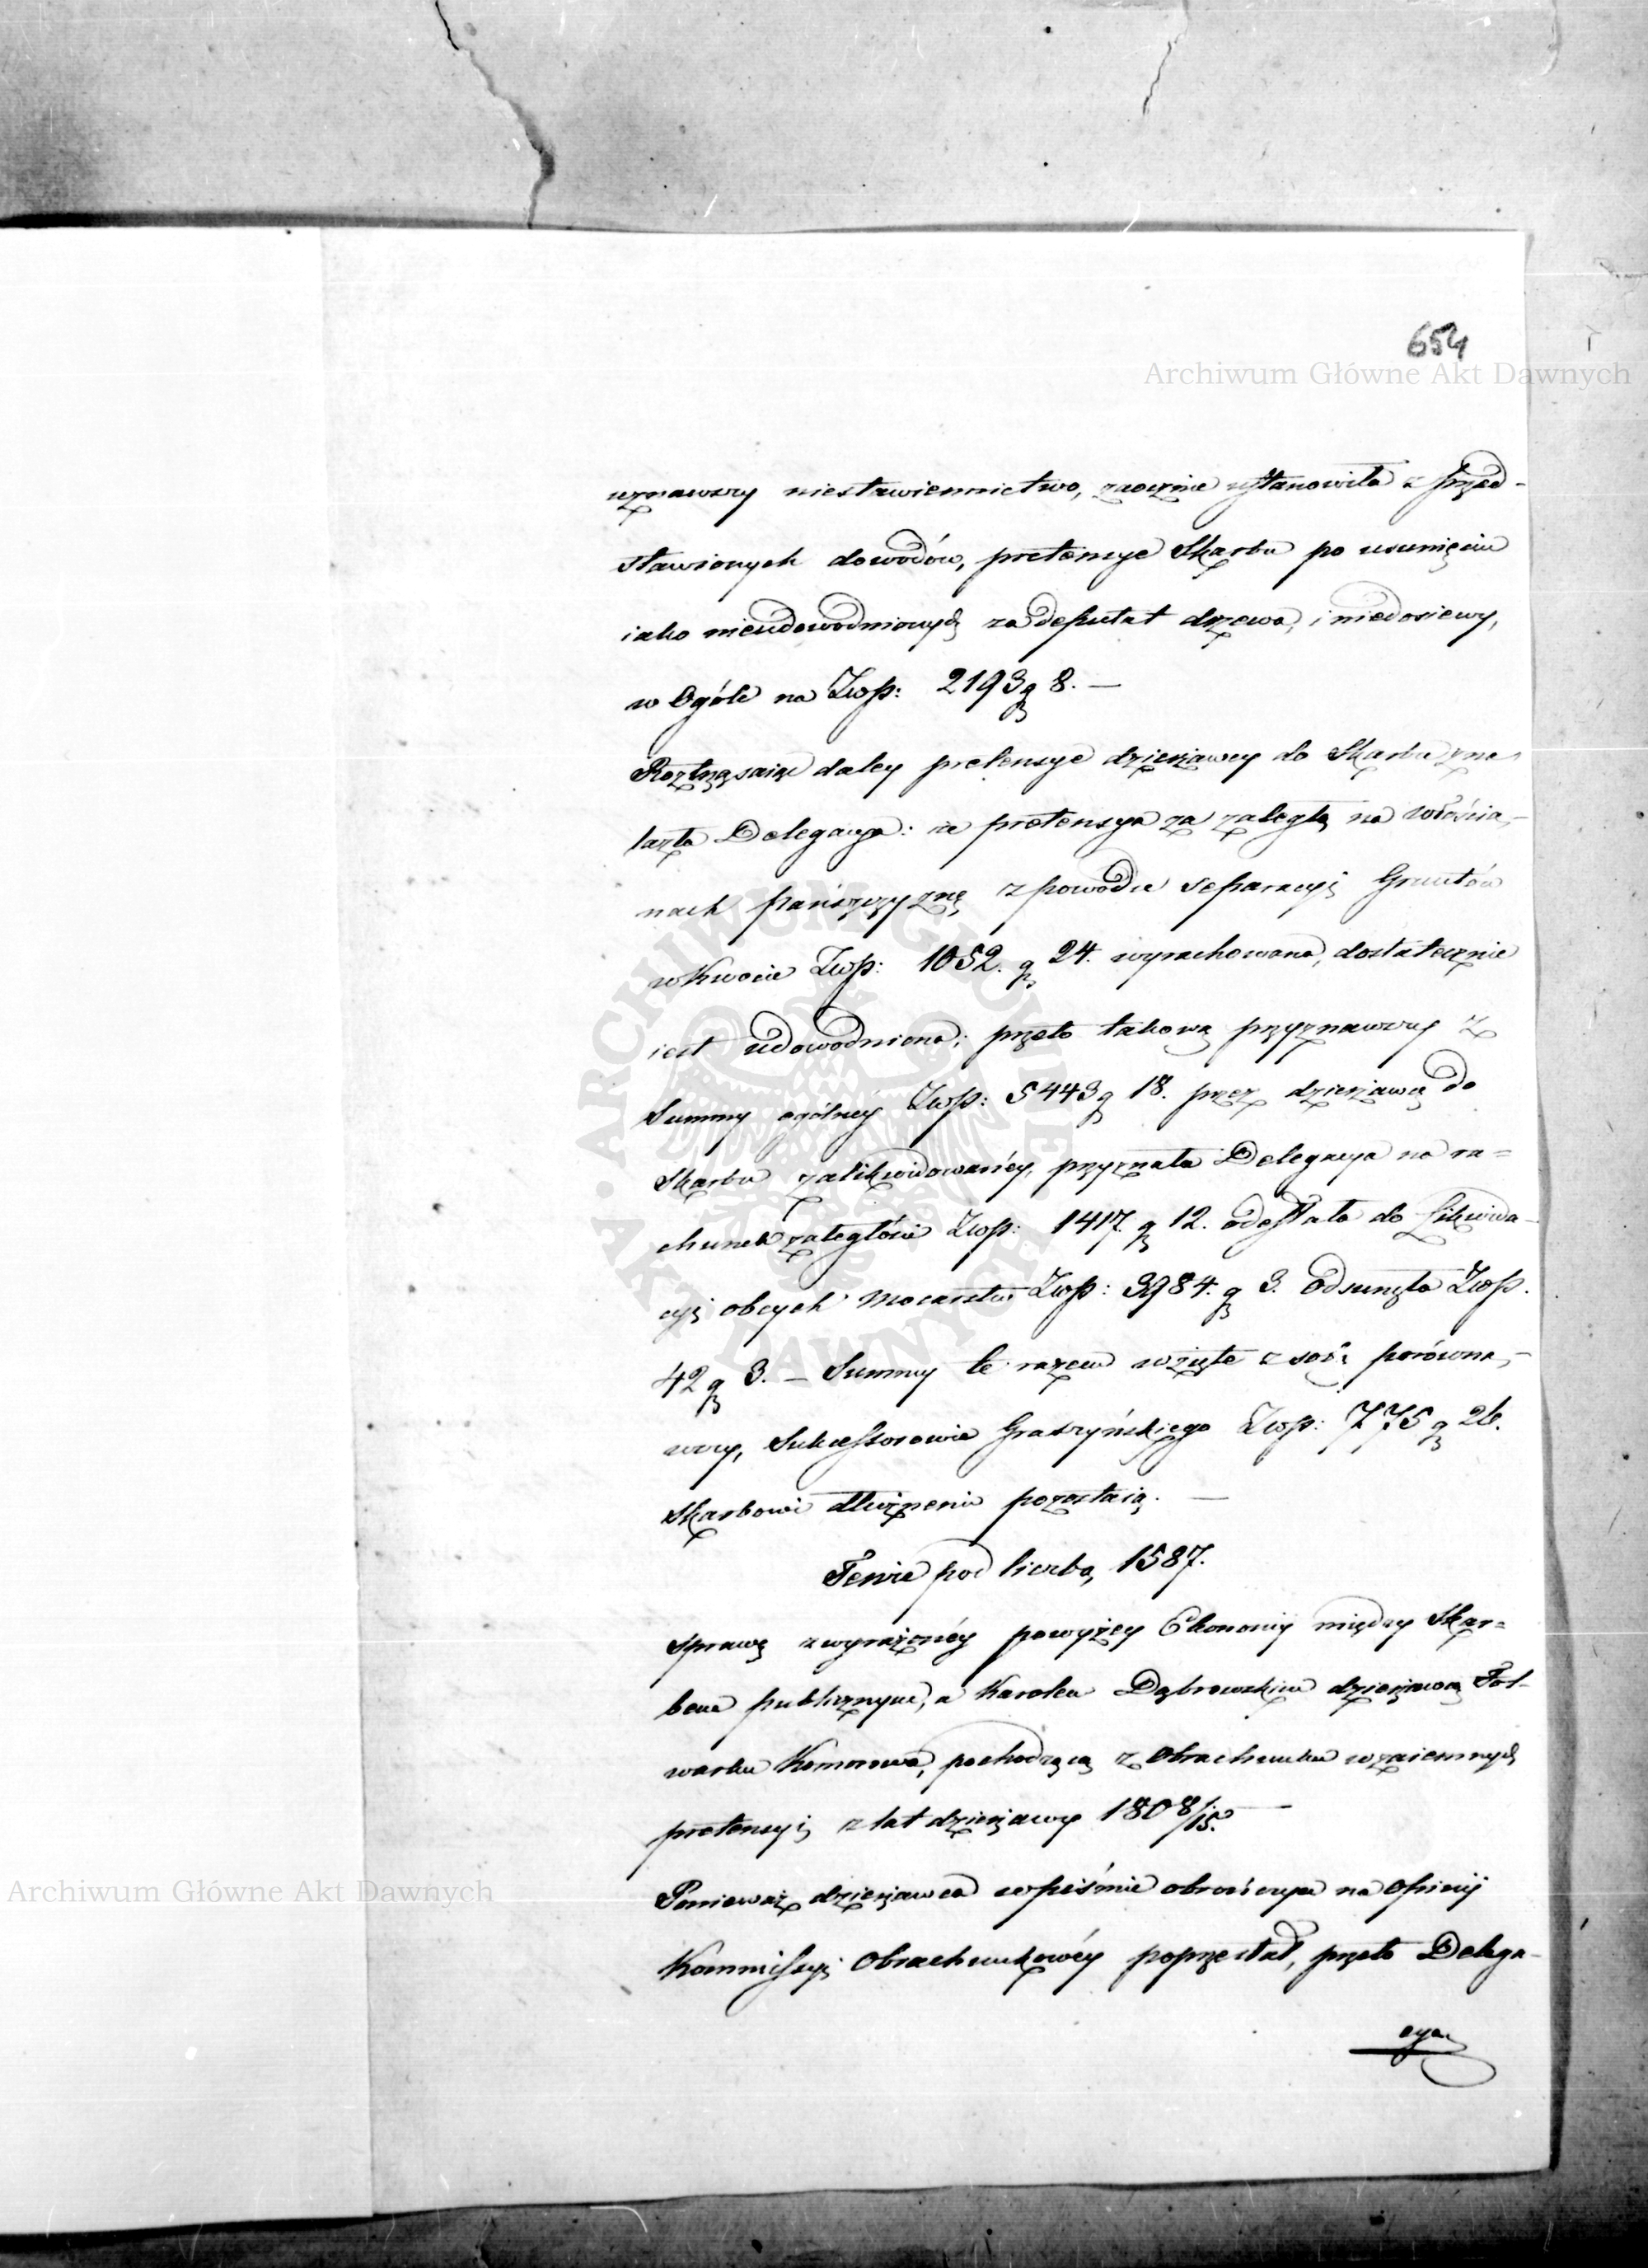 654
Archiwum Główne Akt Dawnych
uznawszy niestawiennictwo, zaocznie ustanowiła z przed-
stawionych dowodów, pretensye Skarbu po usunięciu
iako nieudowodnionych za deputat drzewa, i niedosiewy,
w Ogóle na Złp: 2193 g 8. —
Roztrząsaiąc daley pretensye dzierżawcy do Skarbu zna-
lazła Delegacya: że pretensya za zaległą na włościa-
nach pańszczyznę z powodu separacyi Gruntów
w Kwocie Złp: 1052. g 24. wyrachowana, dostatecznie
iest udowodniona; przeto takową przyznawszy z
Summy ogólnéy Złp: 5443 g 18. przez dzierżawcę do
Skarbu zalikwidowanéy, przyznała Delegacya na ra-
chunek zaległości Złp: 1417. g 12. odesłała do Likwida-
cyi obcych Mocarstw Złp: 3984. g 3. odsunęła Złp.
42 g 3. — Summy te razem wzięte z sobą porówna-
wszy, Sukcessorowie Graszyńskiego Złp: 775 g 26.
Skarbowi dłużnemi pozostaią. —
Tenże pod liczbą 1587.
Sprawę z wyrażonéy powyżey Ekonomij między Skar-
bem publicznym, a Karolem Dąbrowskim dzierżawcą Fol-
warku Komorowa, pochodzącą z Obrachunku wzaiemnych
pretensyi z lat dzierżawy 1808/15. —
Ponieważ dzierżawca w piśmie obrończym na Opinij
Kommissyi Obrachunkowéy poprzestał, przeto Delega-
cya
Archiwum Główne Akt Dawnych
ARCHIWUM GŁÓWNE AKT DAWNYCH